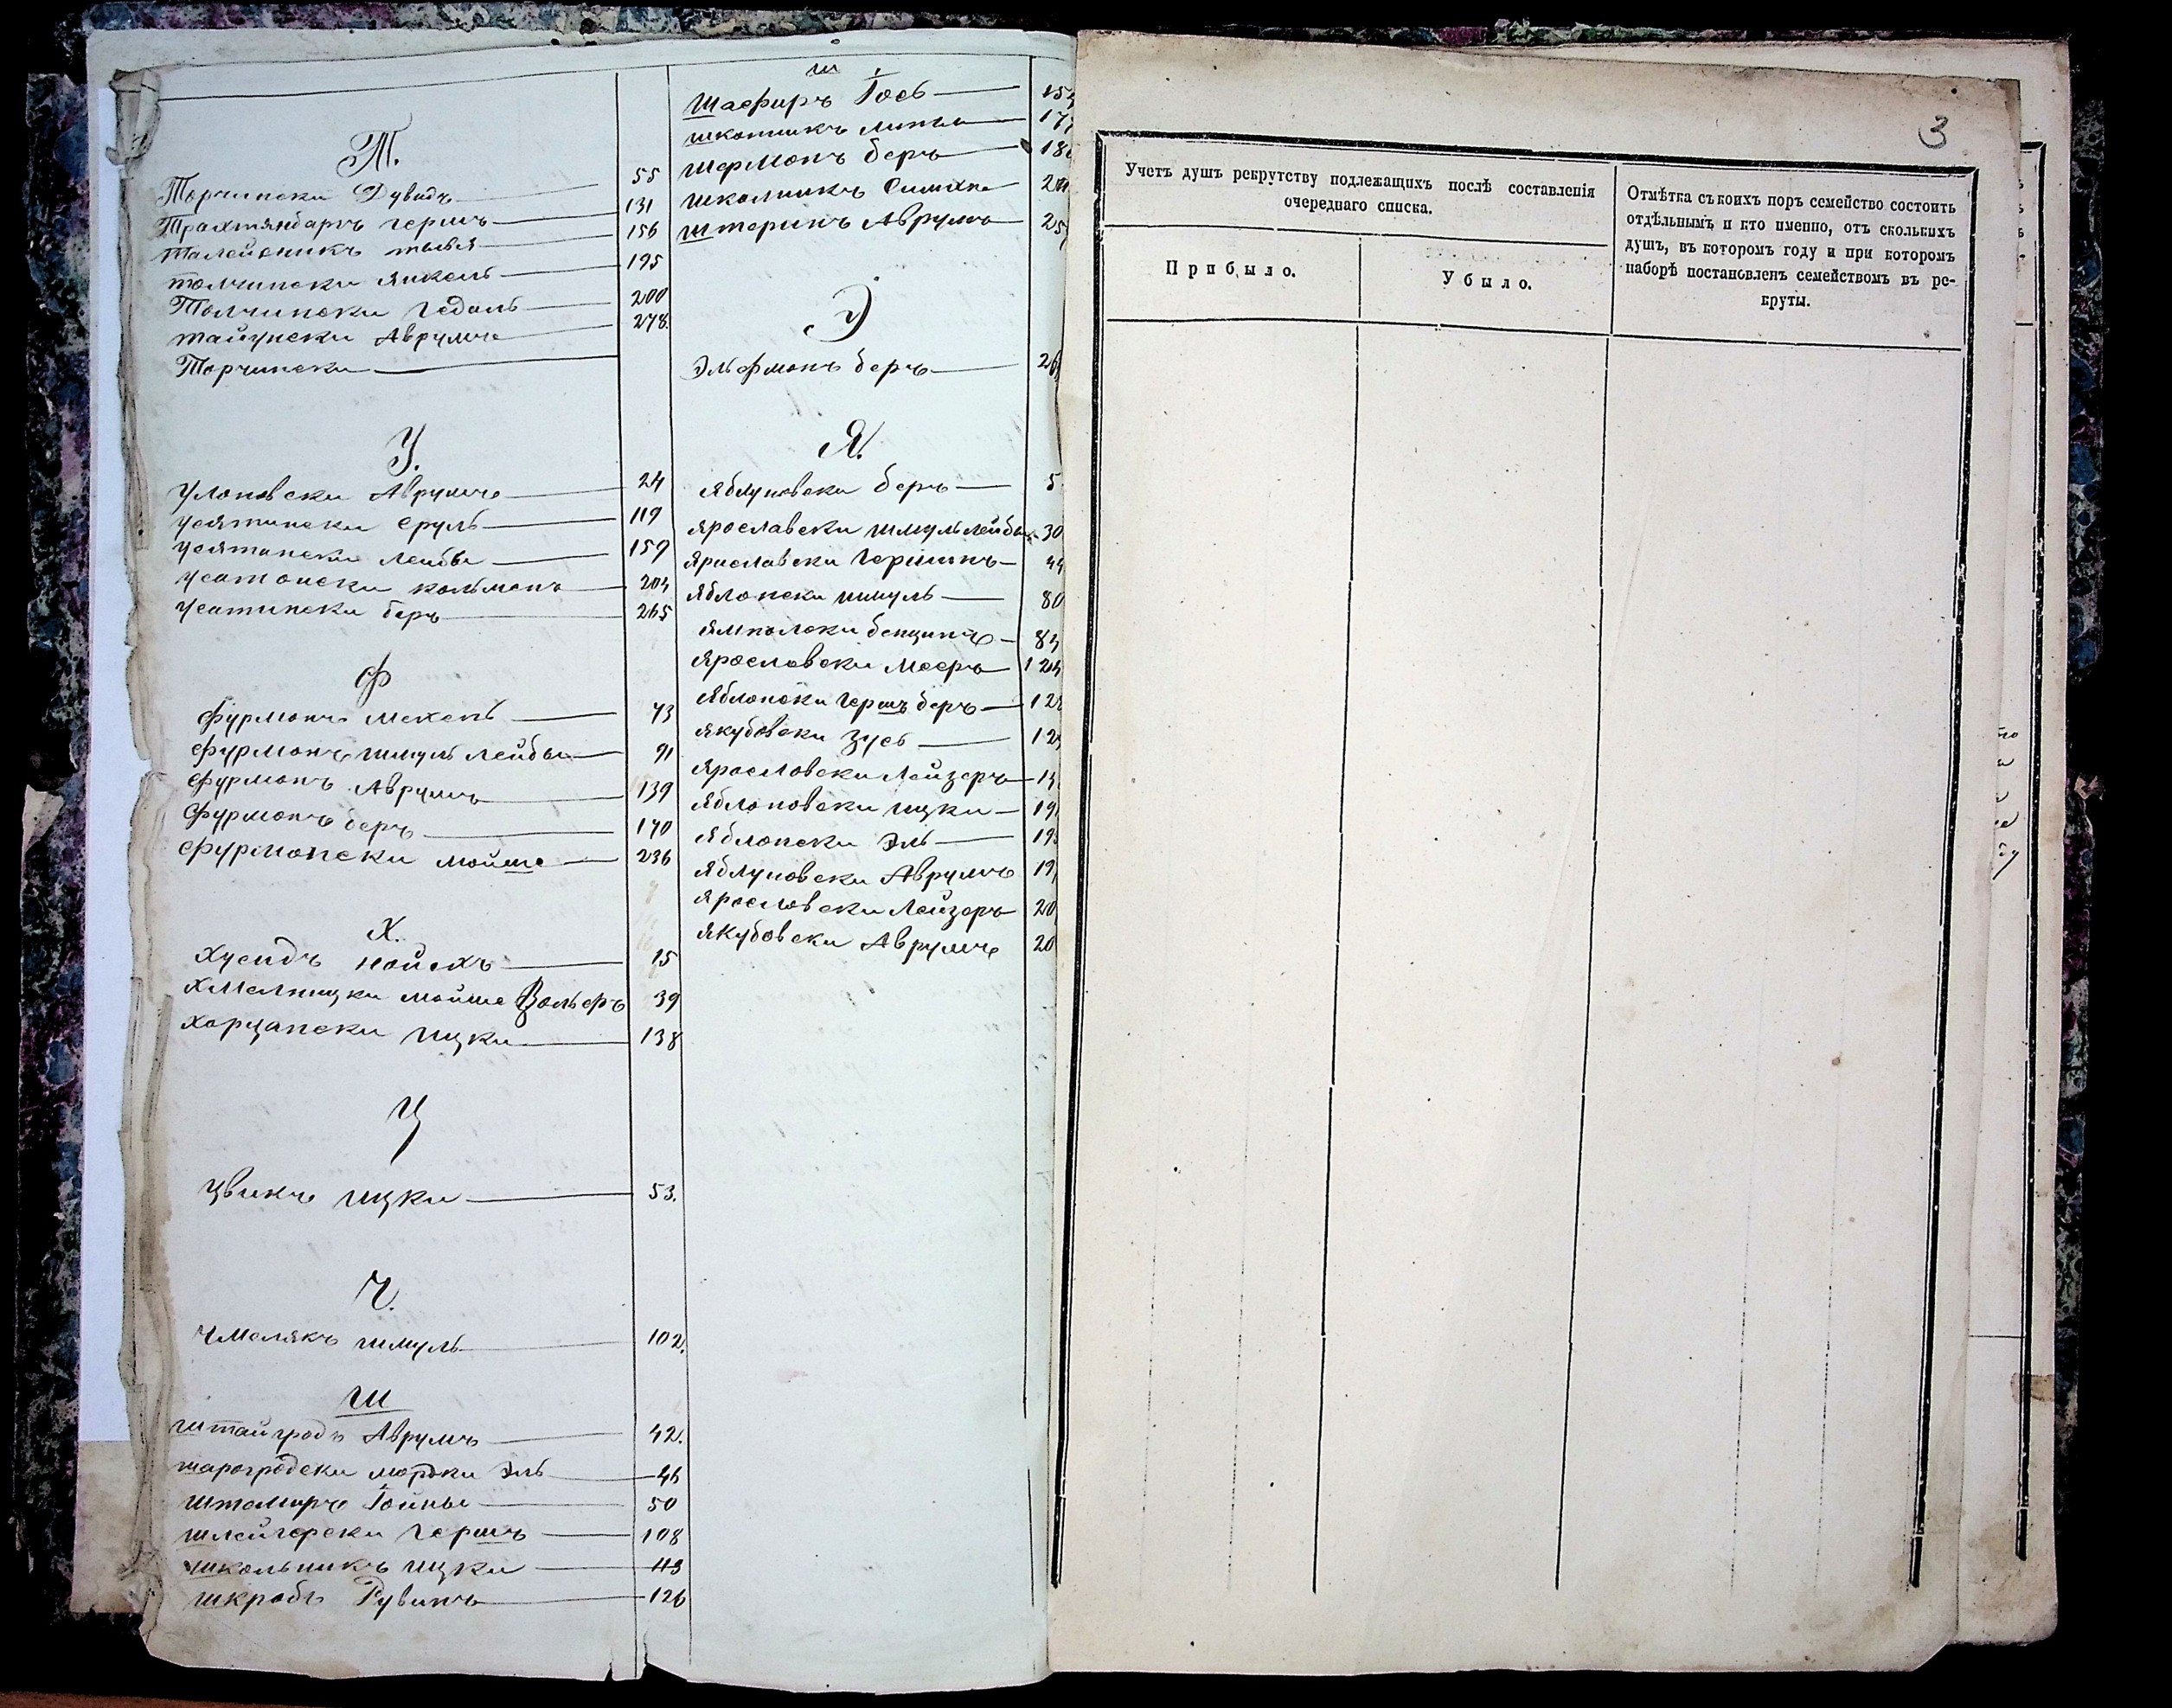 Т.
Торчински Дувидъ 55
Трахтянбаргъ Гершъ 131
Талейсникъ тывья 156
толчински Янкель 195
Толчински Гедаль 200
тайцнски Аврумъ 278.
Торчински
У.
Улановски Аврумъ 24
Усятински Сруль 119
Усятински Лейбы 159
Усатонски Кольманъ 204
Усатински беръ 265
Ф
Фурмонъ Мехель 73
Фурмонъ шмуль лейбы 91
Фурмонъ Аврумъ 139
Фурмонъ беръ 170
Фурмонски мойше 236
Х.
Хусидъ Нойехъ 15
Хмелницки мойше Вольфъ 39
Хорцански ицки 138
Ц
Цвикъ ицки 53.
Ч.
Чмелякъ шмуль 102.
Ш
штайгродъ Аврумъ 42.
шарогродски мордки Эль 46
штомиръ Іойны 50
шлейгерски Гершъ 108
школьникъ ицки 113
шкробъ Рувинъ 126
ш
Шафиръ Іось
школникъ липы
шермонъ беръ
школникъ Симхи
штеринъ Аврумъ
Э
Эльфмонъ беръ
Я.
Яблуновски беръ 5
Ярославски шмульлейбы 30
Ярославски Гершинъ 44
Яблонски шмуль 80
Ямполски бенционъ
Ярославски Мееръ
Яблонски Гершъ беръ
Якубовски Зусь
Ярословски Лейзеръ
Яблоновски ицки
Яблонски Эль
Яблуновски Аврумъ
Ярословски Лейзеръ
Якубовски Аврумъ
3
Учетъ душъ рекрутству подлежащихъ послѣ составленія
очереднаго списка.
Прибыло.
Убыло.
Отмѣтка съ коихъ поръ семейство состоитъ
отдѣльнымъ и кто именно, отъ сколькихъ
душъ, въ которомъ году и при которомъ
наборѣ постановленъ семействомъ въ ре-
круты.